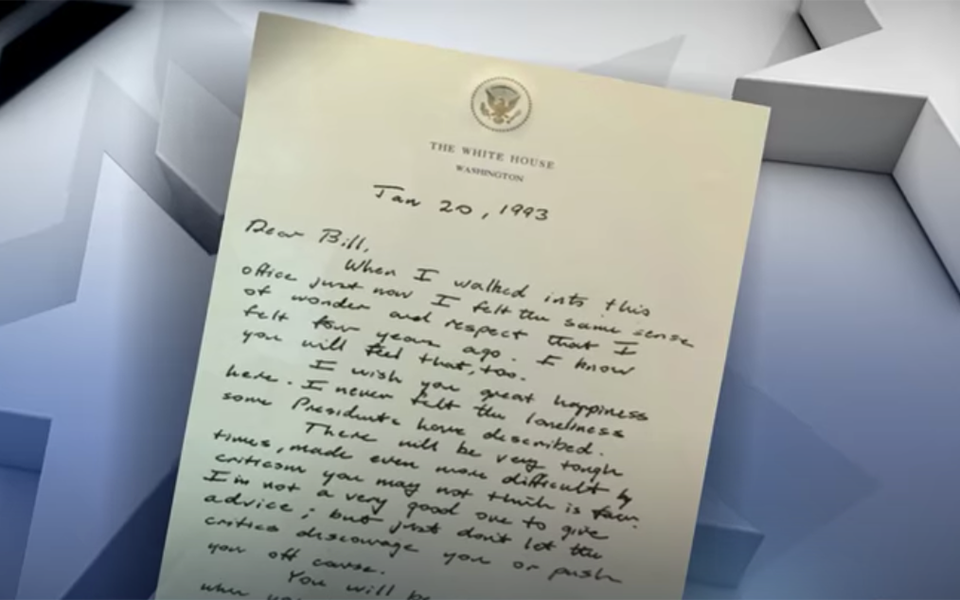 THE WHITE HOUSE
WASHINGTON
Jan 20, 1993
Dear Bill,
When I walked into this
office just now I felt the same sense
of wonder and respect that I
felt four years ago. I know
you will feel that, too.
I wish you great happiness
here. I never felt the loneliness
some Presidents have described.
There will be very tough
times, made even more difficult by
criticism you may not think is fair.
I'm not a very good one to give
advice; but just don't let the
critics discourage you or push
you off course.
You will be
when you